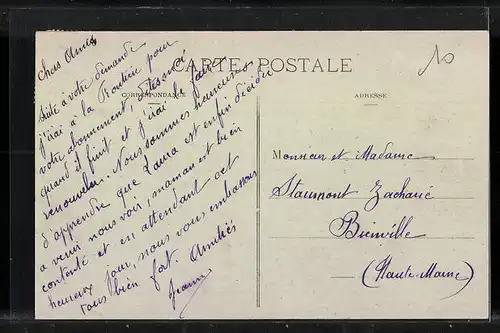 CARTE POSTALE
CORRESPONDANCE
ADRESSE
10
Chers Amis
Suite à votre demande
j'irai à la Routière pour
votre abonnement,
quand il finit et j'irai le faire
renouveler. Nous sommes heureux
d'apprendre que Laura est enfin décidée
a venir nous voir, maman est bien
contente et en attendant cet
heureux jour, nous vous embrassons
tous bien fort. Amitiés
Monsieur et Madame
Staumont Zacharie
Bienville
(Haute-Marne)